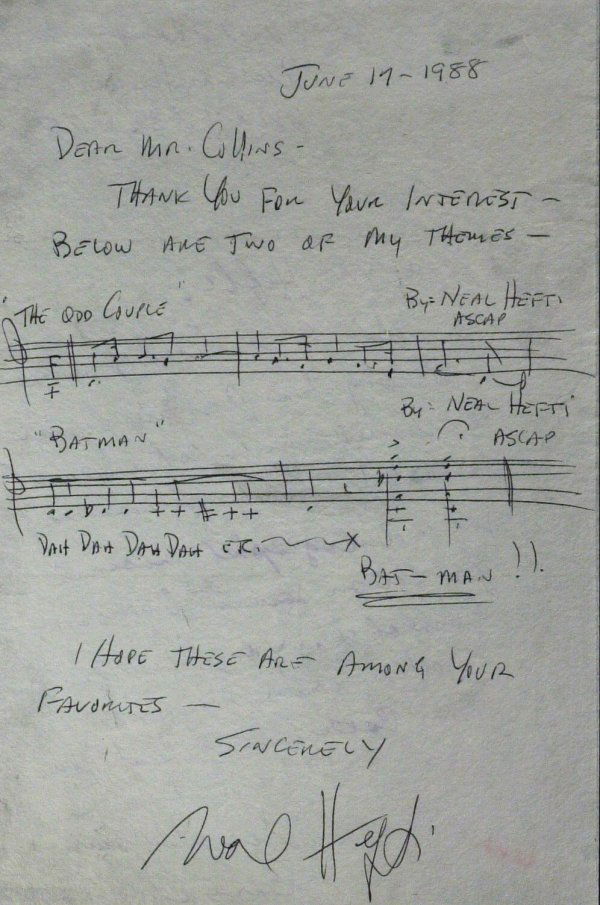 JUNE 17-1988
DEAR MR. COLLINS -
THANK YOU FOR YOUR INTEREST -
BELOW ARE TWO OF MY THEMES -
"THE ODD COUPLE"
BY: NEAL HEFTI
ASCAP
BY: NEAL HEFTI
"BATMAN"
ASCAP
DAH DAH DAH DAH ETC. X
BAT - MAN !!.
I HOPE THESE ARE AMONG YOUR
FAVORITES -
SINCERELY
Neal Hefti